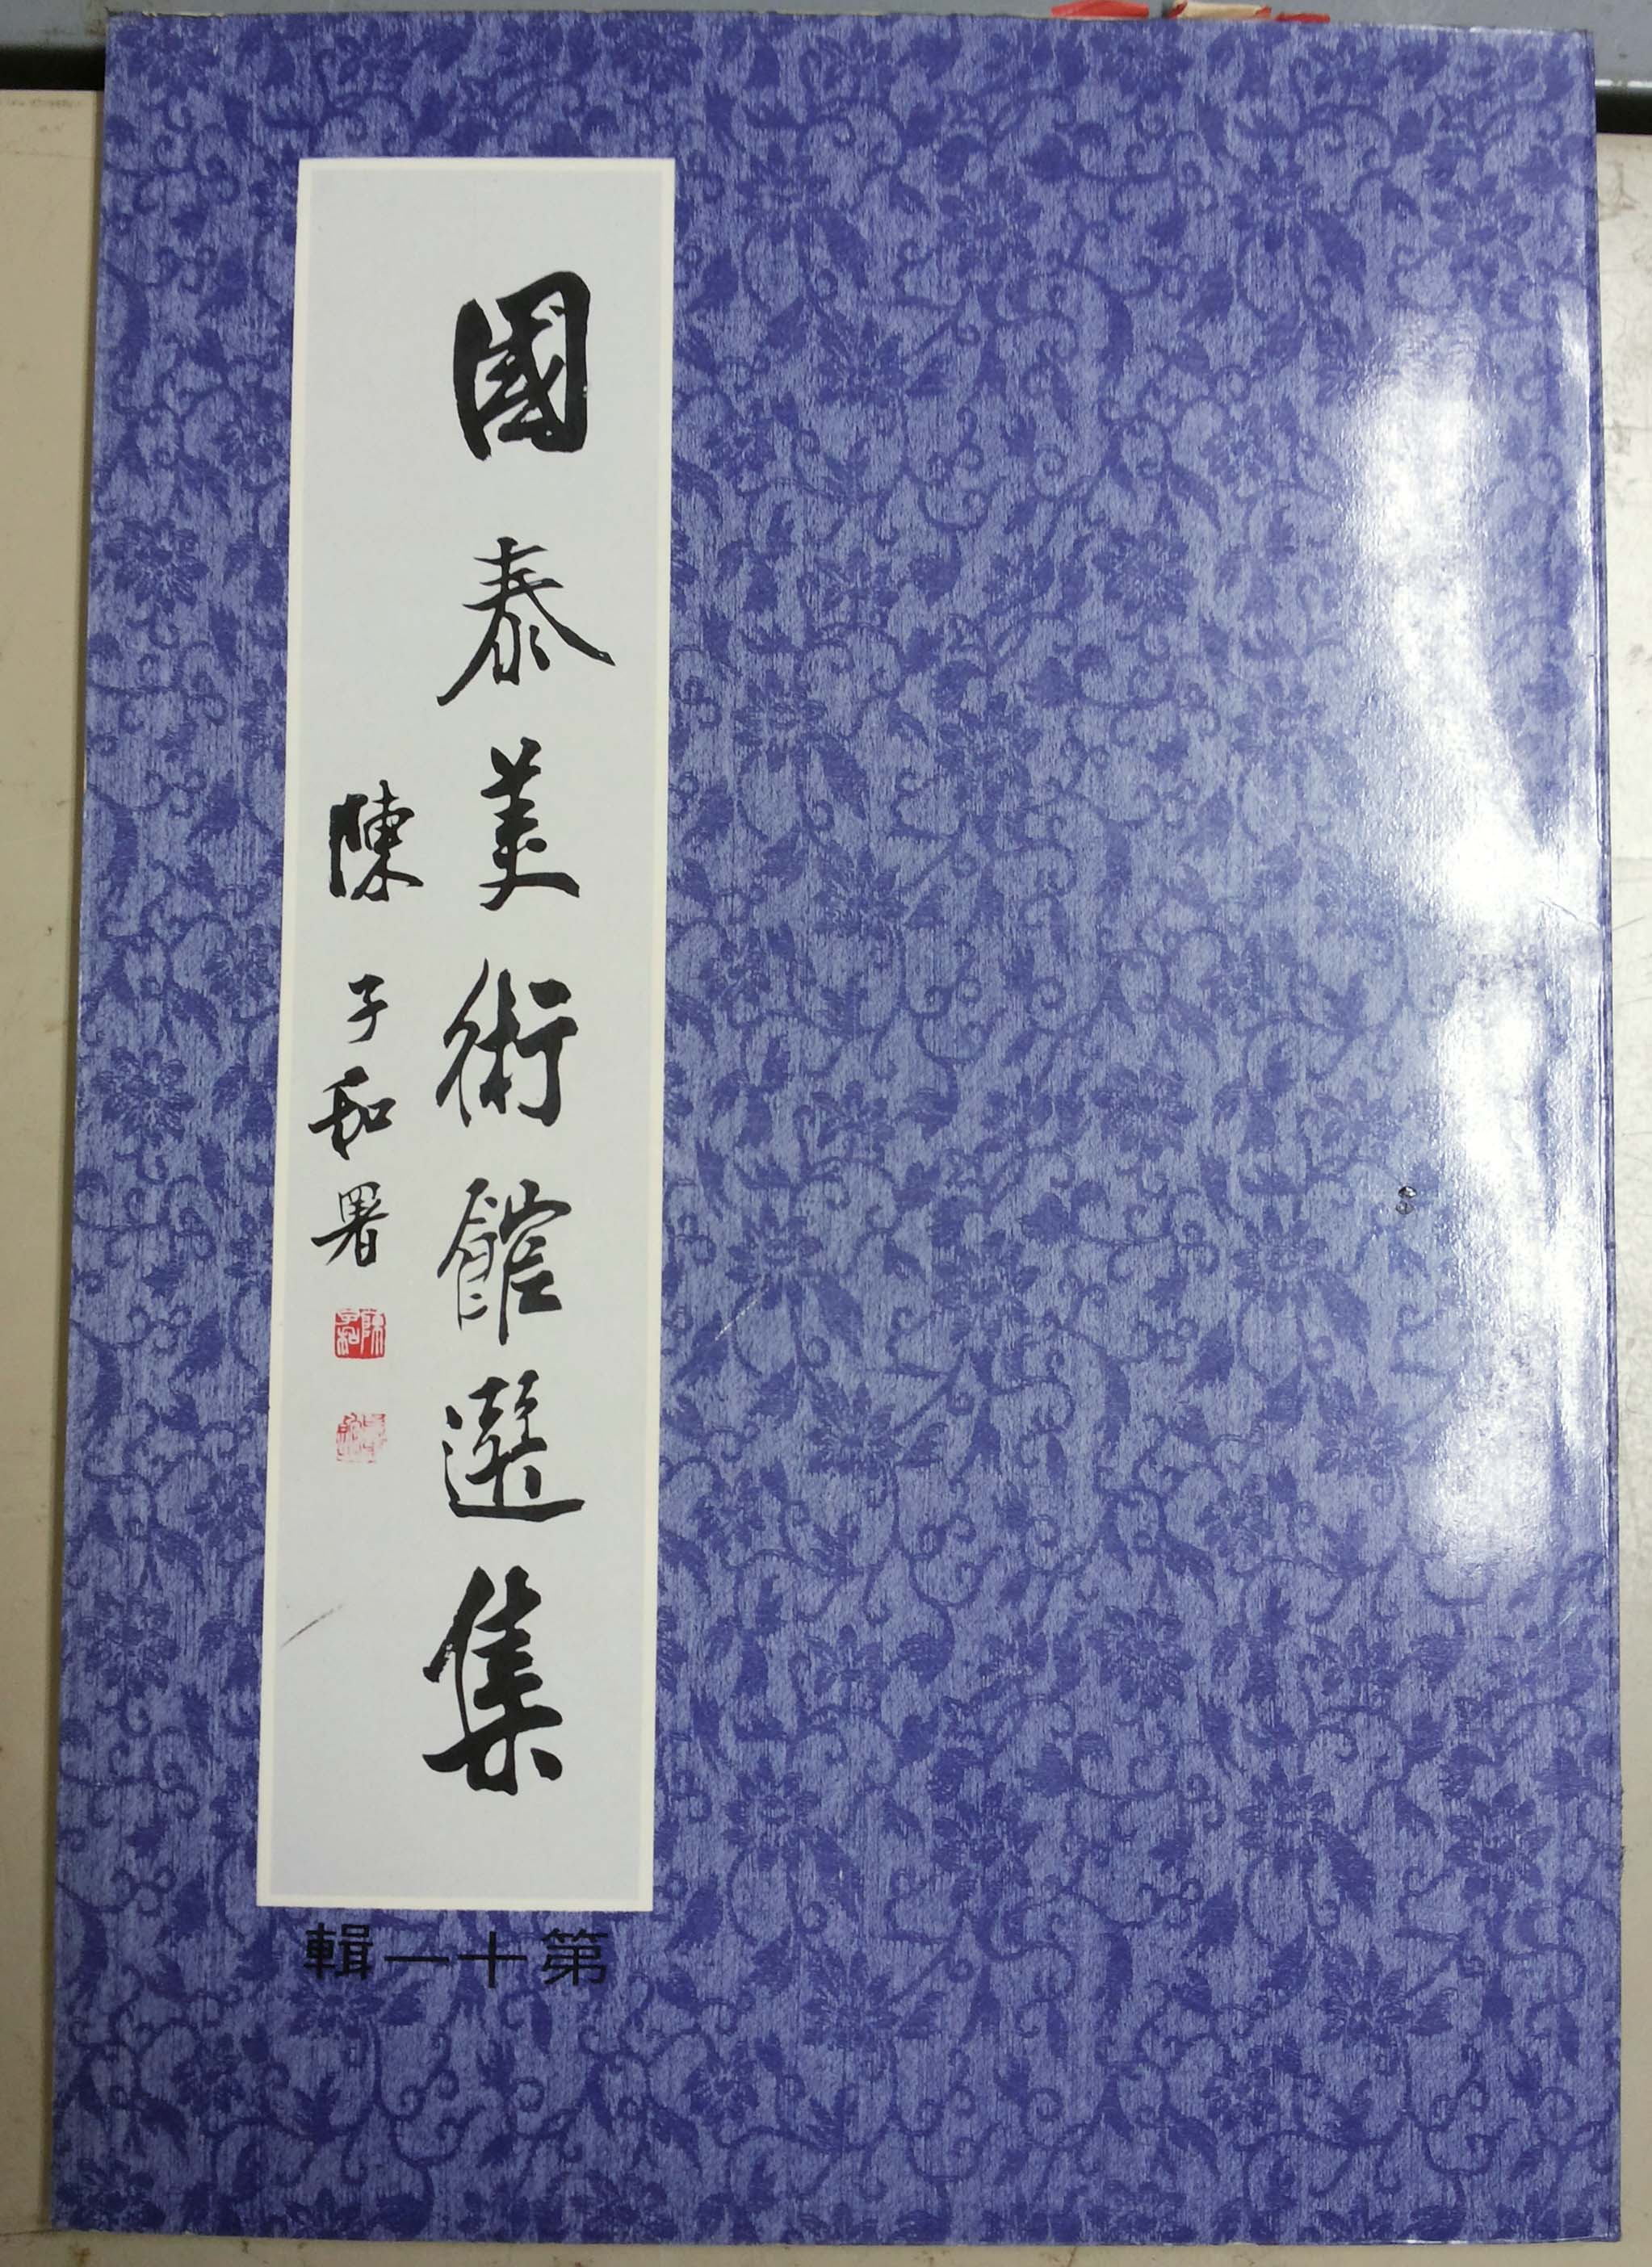 國泰美術館選集
陳子和署
陳子和
第十一輯